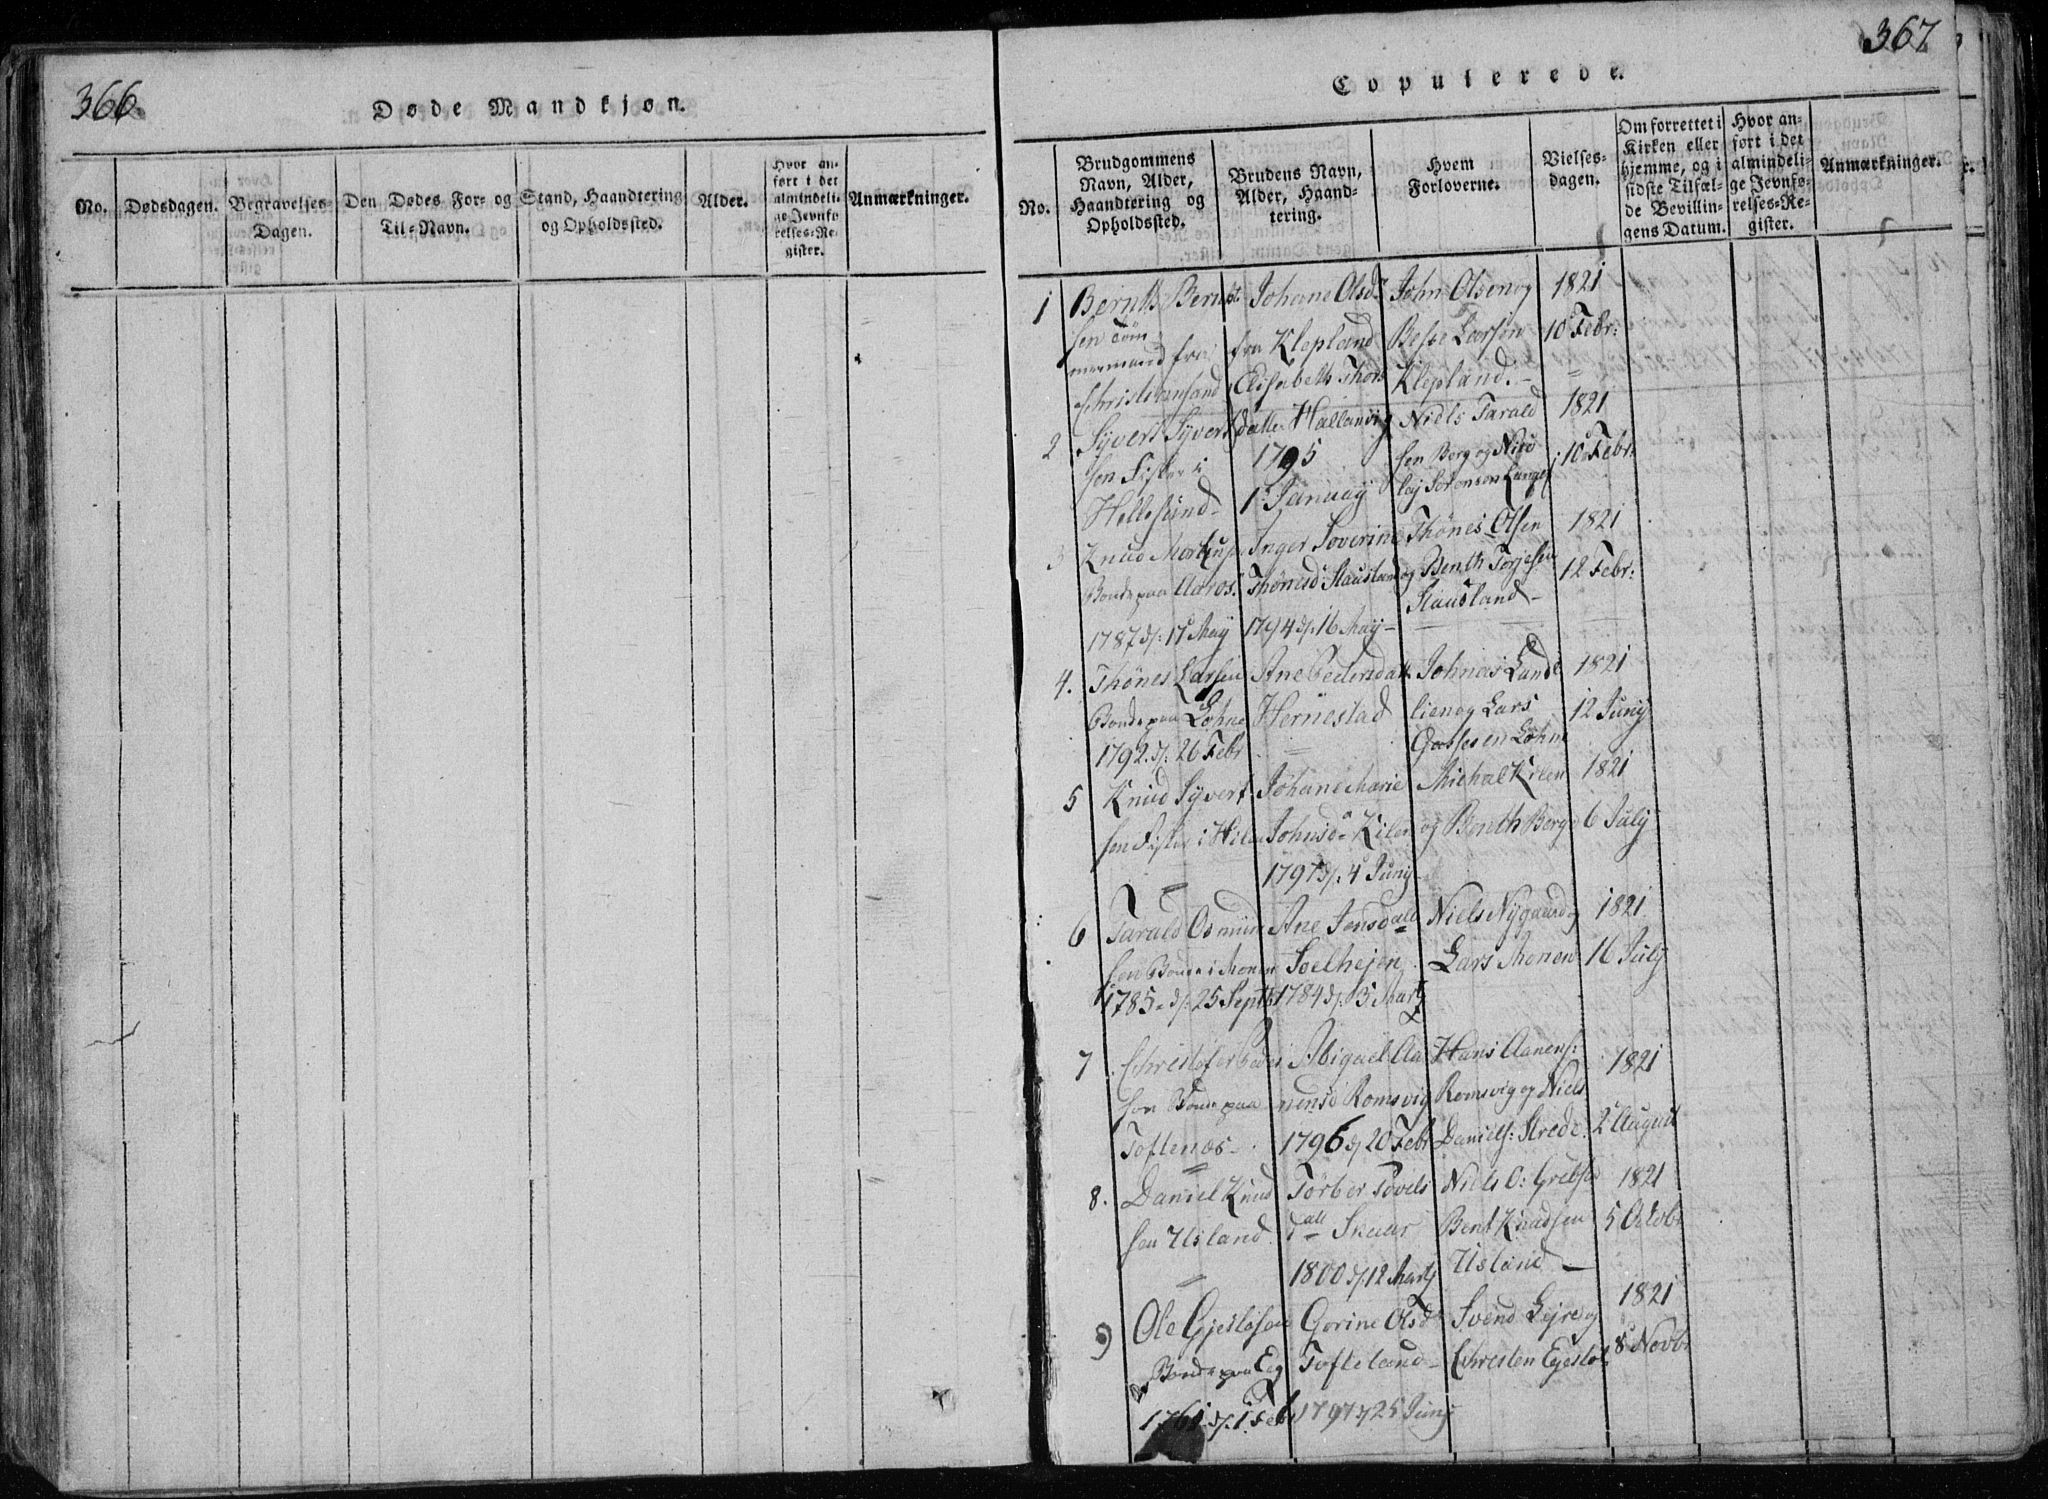 366.
Døde Mandkjøn.
No.
Dødsdagen.
Begravelses-
Dagen.
Den Dødes For- og
Til-Navn.
Stand, Haandtering
og Opholdssted.
Alder.
Hvor an-
ført i det
almindeli-
ge Jevnfø-
relses-Re-
gister.
Anmærkninger.
367
Copulerede.
No.
Brudgommens
Navn, Alder,
Haandtering og
Opholdssted.
Brudens Navn,
Alder, Haand-
tering.
Hvem
Forloverne.
Vielses-
dagen.
Om forrettet i
Kirken eller
hjemme, og i
sidste Tilfæl-
de Bevillin-
gens Datum.
Hvor an-
ført i det
almindeli-
ge Jevnfø-
relses-Re-
gister.
Anmærkninger.
1
Bernth Bernt
sen Töm
mermand fra
Christiansand
Johane Olsd
fra Klepland
John Olsen og
Besse Larsen
Klepland.
1821
10 Febr:
2
Syvert Syvert
sen Fisker i
Hellesund
Elisabeth Thors
datter Hallandvig
1795
1 January
Niels Tarald
sen Berg og Nico
laj Sörensen
1821
10 Febr:
3
Knud
Bonde paa Aaros
1787 d: 17 May
Inger Soverine
Thönesd Stausland
1794 d: 16 May
Thönes Olsen
og Benth Torjesen
Stausland
1821
12 Febr:
4.
Thönes Larsen
Bonde paa Löhne
1792. d: 26 Febr
Ane Pedersdatt
Hernestad
Johnas Lande
lien og Lars
Löhne
1821
12 Juny
5
Knud Syvert
sen Fisker i
Johane Marie
Johnsd Kilen
1797 d: 4 Juny
Michal Kilen
og Benth Berge
1821
6 July
6
Tarald Osmun
sen Bonde i Monen
1785 d: 25 Septb
Ane Jensdatt
Soelhejen
1784 d: 3 Marty
Niels Nygaard og
Lars Monen
1821
16 July
7
Christofer
sen Bonde paa
Toftenæs
Abigael Aa
nensd Romsvig
1796 d 20 Febr
Hans Aanens:
Romsvig og Niels
Daniels: Strede.
1821
2 August
8.
Daniel Knud
sen Usland.
Törber Tövels
datt Skaar
1800 d: 12 Marty
Niels O: Grebstad
Bent Knudsen
Usland
1821
5 Octob
9
Ole Gjeslösen
Bonde paa Eeg
1761 d: 1 Feb
Gorine Olsd
Tofteland
1797 d 25 Juny
Svend Lejre og
Christen Egestöl
1821
8 Novb